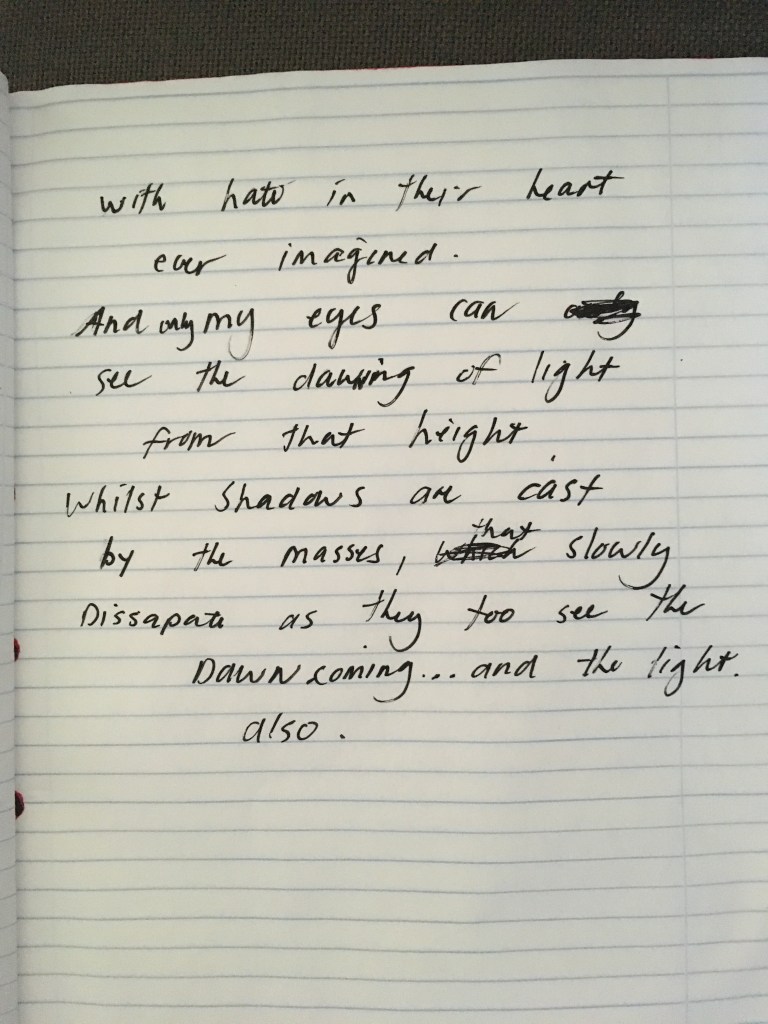 with hate in their heart
ever imagined.
And only my eyes can
see the dawning of light
from that height
Whilst shadows are cast
by the masses, that slowly
Dissapate as they too see the
Dawn coming... and the light.
also.